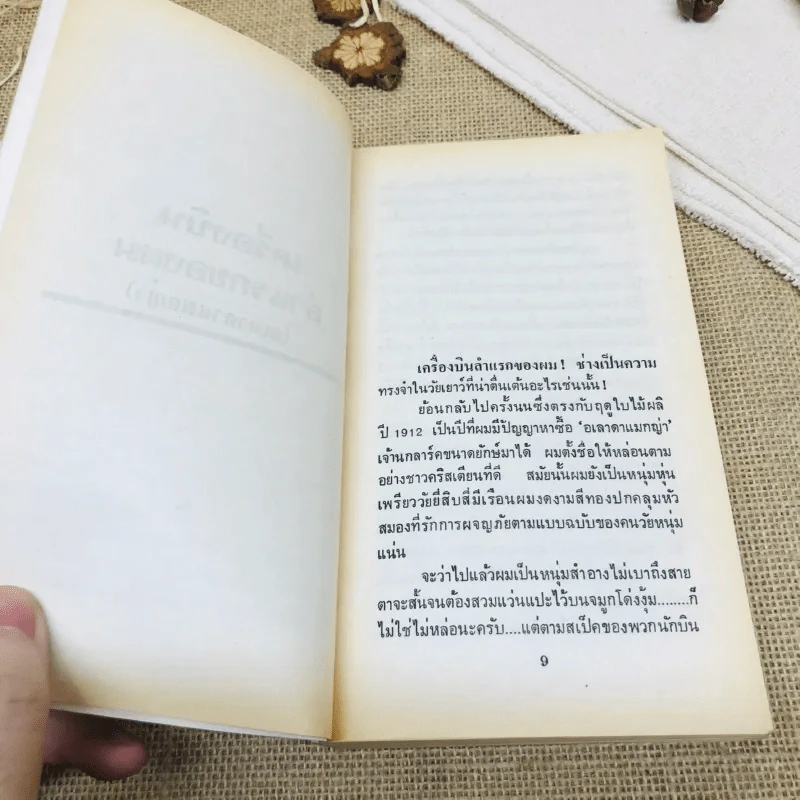 เครื่องบินลำแรกของผม! ช่างเป็นความ
ทรงจำในวัยเยาว์ที่น่าตื่นเต้นอะไรเช่นนั้น!
ย้อนกลับไปครั้งนนซึ่งตรงกับฤดูใบไม้ผลิ
ปี 1912 เป็นปีที่ผมมีปัญญาหาซื้อ 'อเลาดาแมกญ่า'
เจ้านกลาร์คขนาดยักษ์มาได้ ผมตั้งชื่อให้หล่อนตาม
อย่างชาวคริสเตียนที่ดี สมัยนั้นผมยังเป็นหนุ่มหุ่น
เพรียววัยยี่สิบสี่มีเรือนผมงดงามสีทองปกคลุมหัว
สมองที่รักการผจญภัยตามแบบฉบับของคนวัยหนุ่ม
แน่น
จะว่าไปแล้วผมเป็นหนุ่มสำอางไม่เบาถึงสาย
ตาจะสั้นจนต้องสวมแว่นแปะไว้บนจมูกโด่งงุ้ม........ก็
ไม่ใช่ไม่หล่อนะครับ....แต่ตามสเป็คของพวกนักบิน
9